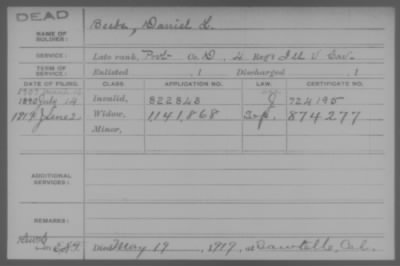 DEAD
NAME OF SOLDIER: Beebe, Daniel L.
SERVICE: Late rank, Pvt Co. D, 4 Reg't Ill V Cav.
TERM OF SERVICE: Enlisted , 1 Discharged , 1
DATE OF FILING. CLASS. APPLICATION NO. LAW. CERTIFICATE NO.
1890 July 14 Invalid, 822843 724195
1919 June 2 Widow, 1141,868 874277
Minor,
ADDITIONAL SERVICES:
REMARKS:
Died May 19, 1919, at Sawtelle, Cal.